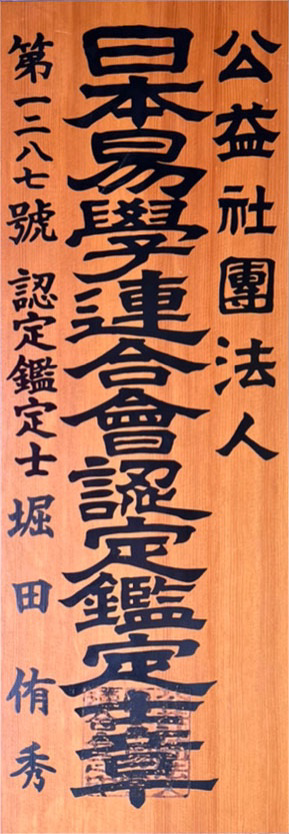 公益社團法人
日本易學連合會認定鑑定士章
第一二八七號 認定鑑定士 堀田侑秀